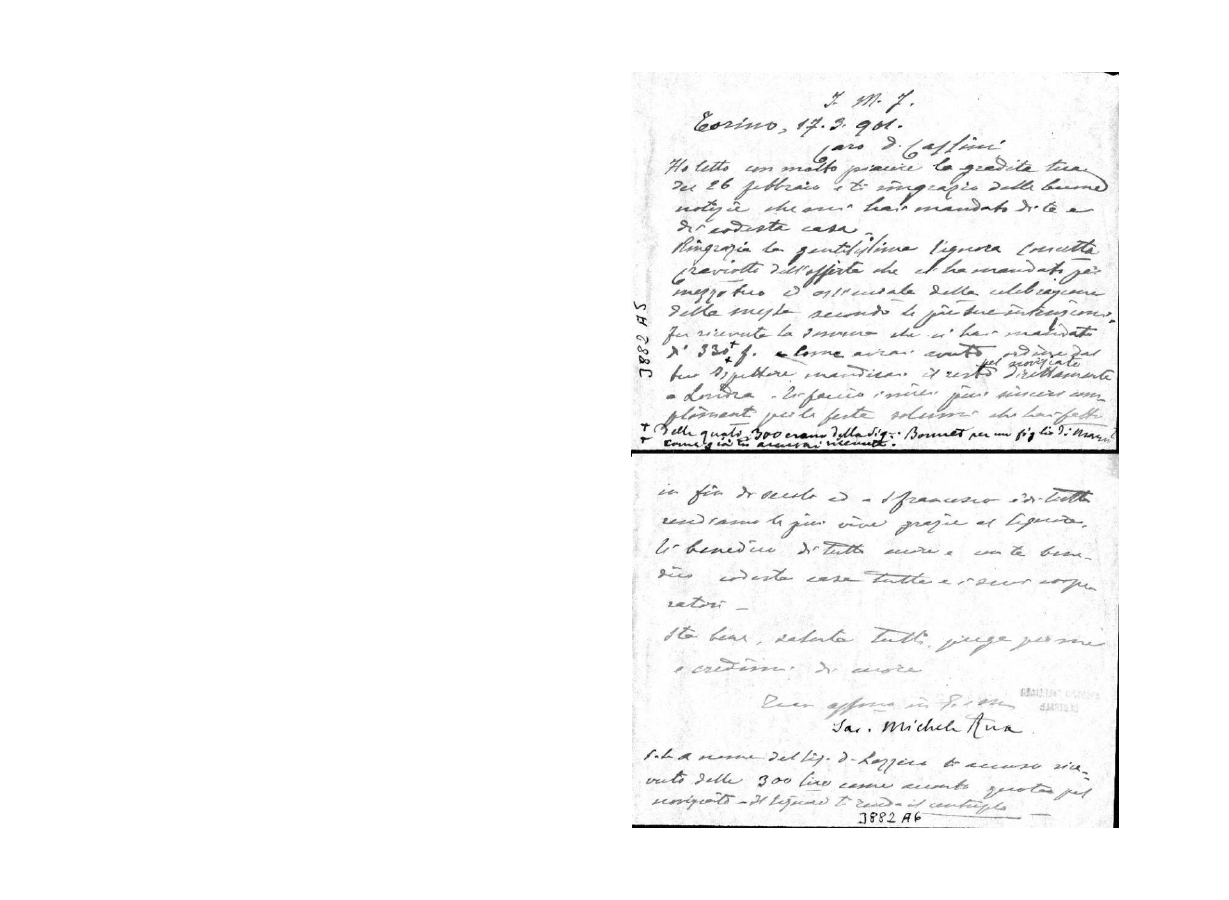 J. M. J.
Torino, 17. 3. 901.
Caro D. Cassini
Ho letto con molto piacere la gradita tua
del 26 febbraio e ti ringrazio delle buone
notizie che mi hai mandato di te e
di codesta casa.
Ringrazia la gentilissima Signora Concetta
Craviotto dell'offerta che ci ha mandato per
mezzo tuo ed assicurala della celebrazione
della messa secondo le pie sue intenzioni.
Fu ricevuta la somma che ci hai mandato
di 330+ f. e come avrai avuto ordine dal
pel noviziato
tuo Ispettore mandisi il resto direttamente
a Londra. Ti faccio i miei più sinceri com-
plimenti per le feste solenni che hai fatto
+ Delle quali 300 erano della Sig. Bonnet per un figlio di
+ come già ti accusai ricevuta.
J882 A5
in fin di secolo ed a S Francesco e di tutto
rendiamo le più vive grazie al Signore.
Ti benedico di tutto cuore e con te bene-
dico codesta casa tutta e i suoi coope
ratori -
Sta bene, saluta tutti, prega per me
e credimi di cuore
Tuo affmo in G. e M.
Sac. Michele Rua
P.S. A nome del Sig. D. Lazzero ti accuso rice-
vuta delle 300 lire come acconto quota pel
noviziato - Il Signore ti renda il centuplo
J882 A6